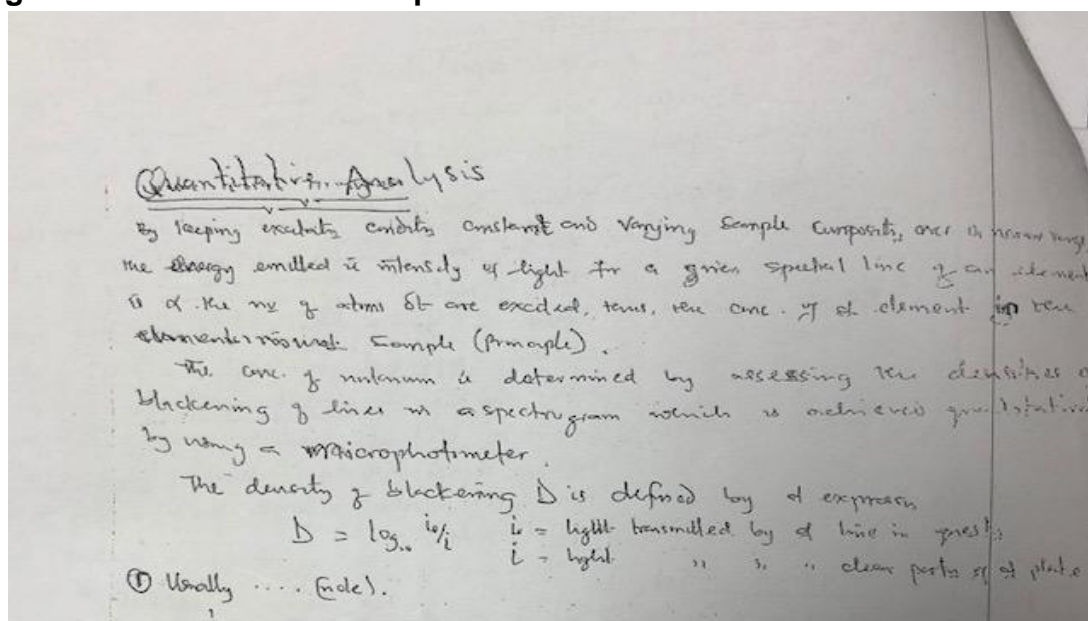 Quantitative Analysis
By keeping excitatn conditn constant and varying sample compositn, over a narrow range
the energy emitted ie intensity of light for a given spectral line of an element
is α the no of atoms dt are excited, tens, the conc. of d element in the
sample (principle).
The conc. of unknown is determined by assessing the densities of
blackening of lines in a spectrogram which is achieved
by using a microphotometer.
The density of blackening D is defined by d expression
D = log₁₀ i₀/i i₀ = light transmitted by d line in questn
i = light " " " clear parts of d plate
① Usually .... (note).